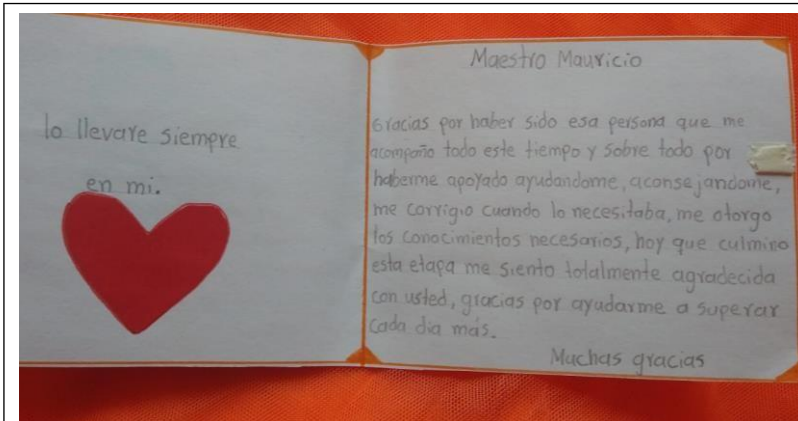 lo llevare siempre
en mi.
Maestro Mauricio
Gracias por haber sido esa persona que me
acompaño todo este tiempo y sobre todo por
haberme apoyado ayudandome, aconsejandome,
me corrigio cuando lo necesitaba, me otorgo
los conocimientos necesarios, hoy que culmino
esta etapa me siento totalmente agradecida
con usted, gracias por ayudarme a superar
cada dia más.
Muchas gracias